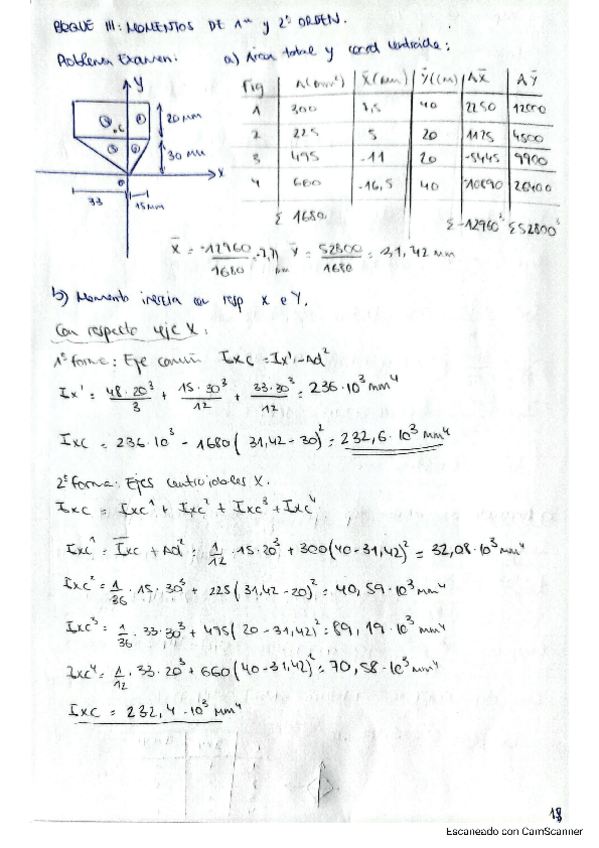 BLOQUE III: MOMENTOS DE 1er y 2º ORDEN.
Problema Examen:
a) Área total y coord centroide:
Y
20 mm
30 mm
X
33
15 mm
Fig | A(mm²) | X̄(mm) | Ȳ(mm) | AX̄ | AȲ
1 | 300 | 7,5 | 40 | 2250 | 12000
2 | 225 | 5 | 20 | 1125 | 4500
3 | 495 | -11 | 20 | -5445 | 9900
4 | 660 | -16,5 | 40 | -10890 | 26400
Σ 1680
Σ -12960 Σ 52800
X̄ = -12960/1680 = -7,71 mm Ȳ = 52800/1680 = 31,42 mm
b) Momento inercia con resp X e Y.
Con respecto eje X:
1ª forma: Eje común Ixc = Ix' - Ad²
Ix' = 48·20³/3 + 15·30³/12 + 33·30³/12 = 236·10³ mm⁴
Ixc = 236·10³ - 1680(31,42-30)² = 232,6·10³ mm⁴
2ª forma: Ejes centroidales X.
Ixc = Ixc¹ + Ixc² + Ixc³ + Ixc⁴
Ixc¹ = Īxc + Ad² = 1/12·15·20³ + 300(40-31,42)² = 32,08·10³ mm⁴
Ixc² = 1/36·15·30³ + 225(31,42-20)² = 40,59·10³ mm⁴
Ixc³ = 1/36·33·30³ + 495(20-31,42)² = 89,19·10³ mm⁴
Ixc⁴ = 1/12·33·20³ + 660(40-31,42)² = 70,58·10³ mm⁴
Ixc = 232,4·10³ mm⁴
Escaneado con CamScanner